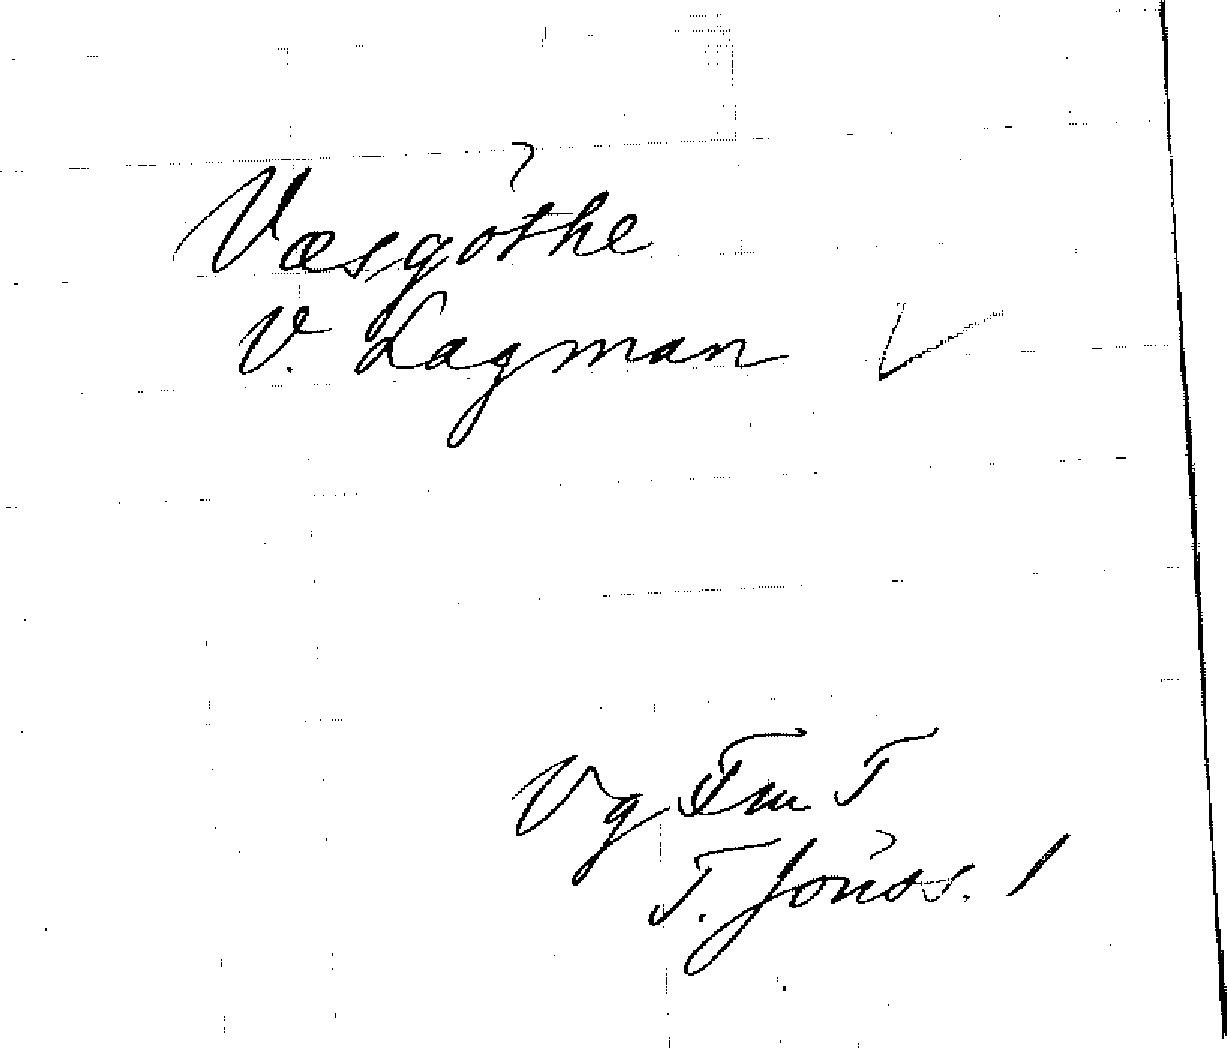 Væsgöthe
V. Lagman
Vg Fm T
T. Jönss. 1